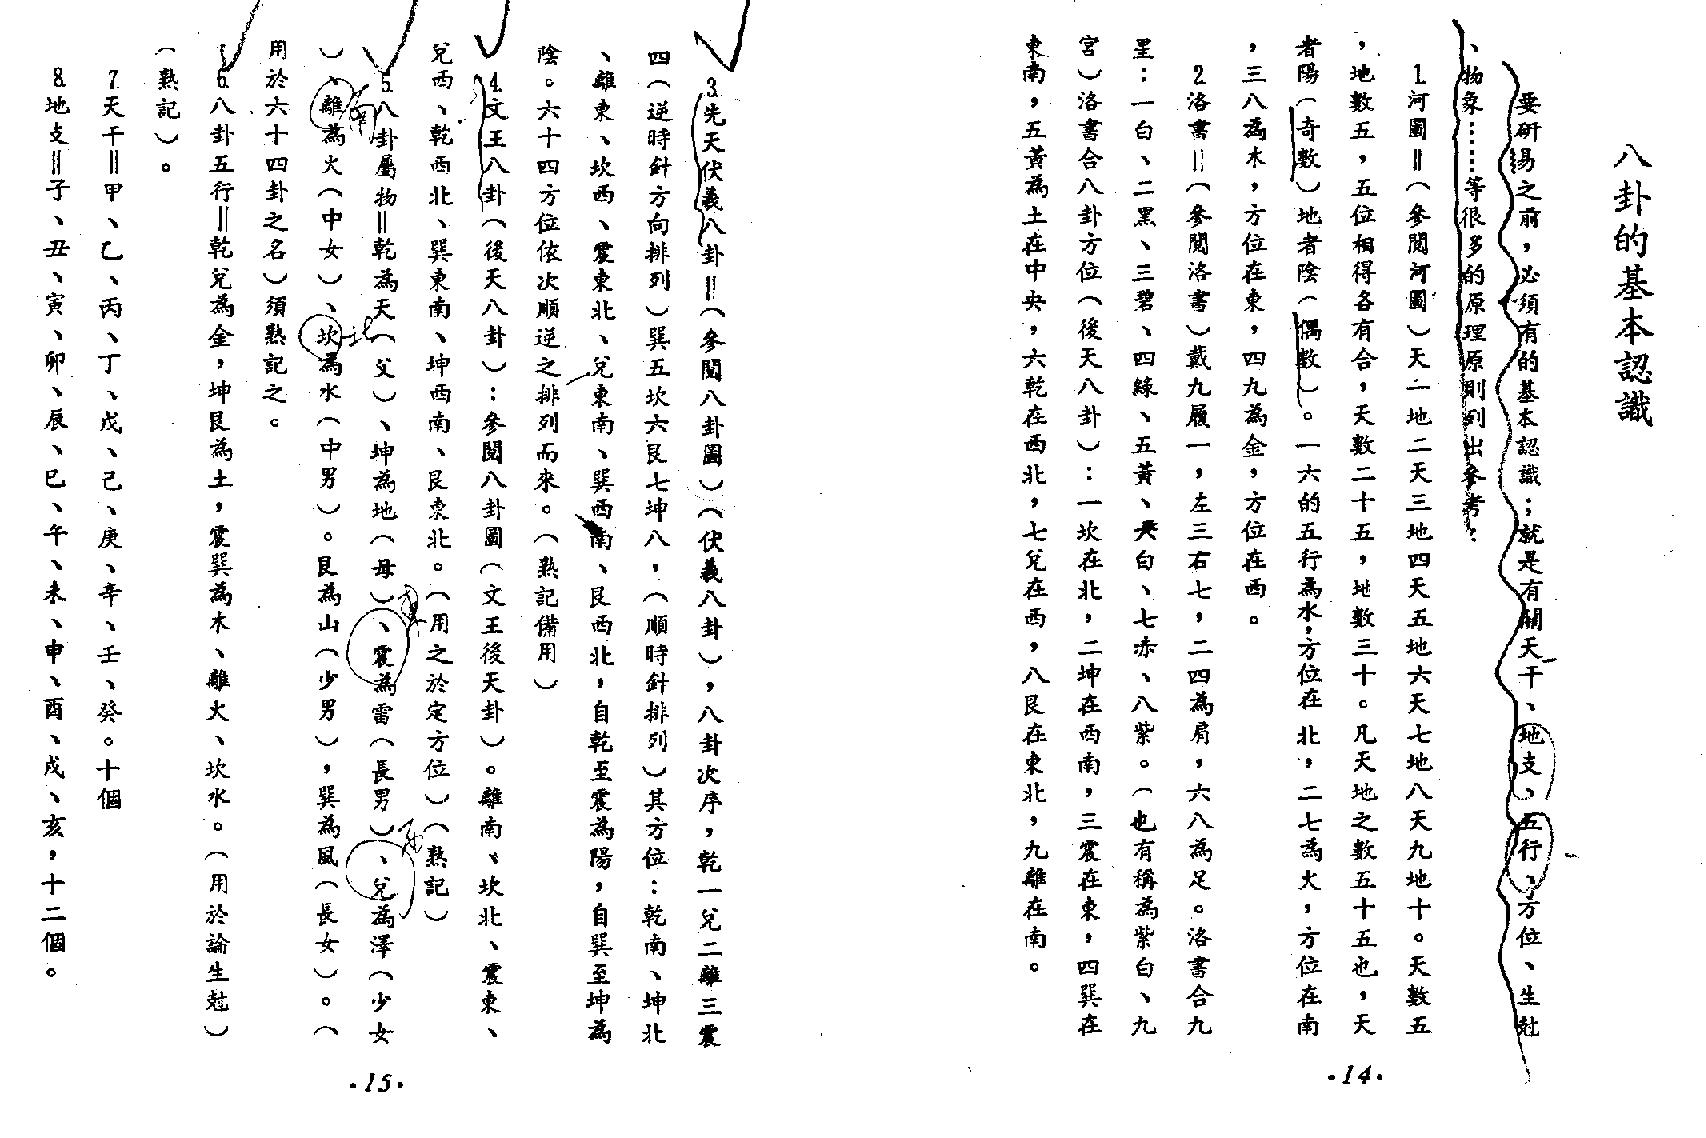 八卦的基本認識
要研易之前，必須有的基本認識；就是有關天干、地支、五行、方位、生尅
、物象……等很多的原理原則列出參考：
1.河圖‖（參閱河圖）天一地二天三地四天五地六天七地八天九地十。天數五
，地數五，五位相得各有合，天數二十五，地數三十。凡天地之數五十五也，天
者陽（奇數）地者陰（偶數）。一六的五行為水，方位在北，二七為火，方位在南
，三八為木，方位在東，四九為金，方位在西。
2.洛書‖（參閱洛書）戴九履一，左三右七，二四為肩，六八為足。洛書合九
星：一白、二黑、三碧、四綠、五黃、六白、七赤、八紫。（也有稱為紫白、九
宮）洛書合八卦方位（後天八卦）：一坎在北，二坤在西南，三震在東，四巽在
東南，五黃為土在中央，六乾在西北，七兌在西，八艮在東北，九離在南。
·14·
3.先天伏義八卦‖（參閱八卦圖）（伏義八卦），八卦次序，乾一兌二離三震
四（逆時針方向排列）巽五坎六艮七坤八，（順時針排列）其方位：乾南、坤北
、離東、坎西、震東北、兌東南、巽西南、艮西北，自乾至震為陽，自巽至坤為
陰。六十四方位依次順逆之排列而來。（熟記備用）
4.文王八卦（後天八卦）：參閱八卦圖（文王後天卦）。離南、坎北、震東、
兌西、乾西北、巽東南、坤西南、艮東北。（用之於定方位）（熟記）
5.八卦屬物‖乾為天（父）、坤為地（母）、震為雷（長男）、兌為澤（少女
）、離為火（中女）、坎為水（中男）。艮為山（少男），巽為風（長女）。（
用於六十四卦之名）須熟記之。
南
北
東
西
6.八卦五行‖乾兌為金，坤艮為土，震巽為木、離火、坎水。（用於論生尅）
（熟記）。
7.天干‖甲、乙、丙、丁、戊、己、庚、辛、壬、癸。十個
8.地支‖子、丑、寅、卯、辰、巳、午、未、申、酉、戌、亥，十二個。
·15·